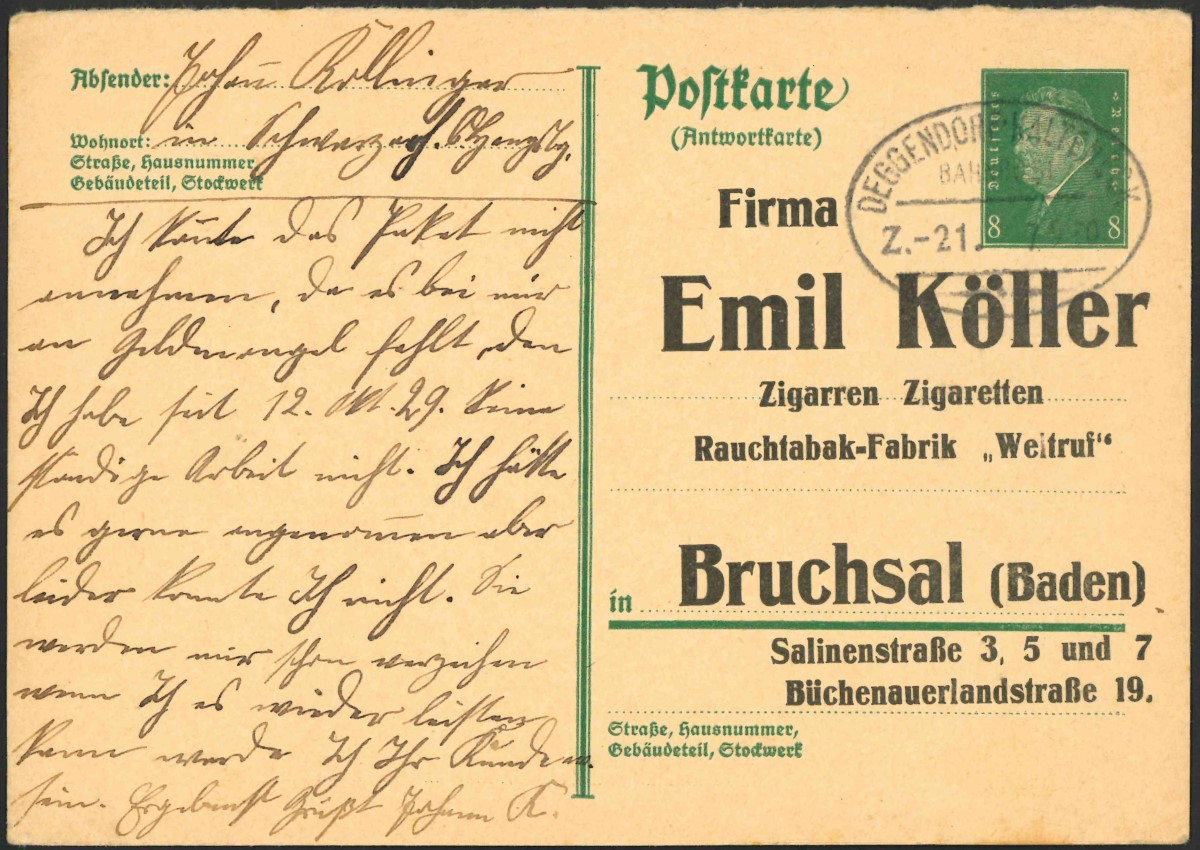 Absender: Johann Köllinger
Wohnort: in Schwarzach.
Straße, Hausnummer,
Gebäudeteil, Stockwerk
Ich konnte das Paket nicht
annehmen, da es bei mir
an Geldmangel fehlt, den
Ich habe seit 12. Okt. 29. keine
ständige Arbeit nicht. Ich hätte
es gerne angenom̄en aber
leider konnte Ich nicht. Sie
werden mir schon verzeihen
wenn Ich es wieder leisten
kann werde Ich Ihr Kunde
sein. Ergebenst Grüßt Johann K.
Postkarte
(Antwortkarte)
Deutsches Reich
8 8
DEGGENDORF-KALTENECK
BAHNPOST
Z.-21.
Firma
Emil Köller
Zigarren Zigaretten
Rauchtabak-Fabrik „Weltruf“
in Bruchsal (Baden)
Salinenstraße 3, 5 und 7
Büchenauerlandstraße 19.
Straße, Hausnummer,
Gebäudeteil, Stockwerk